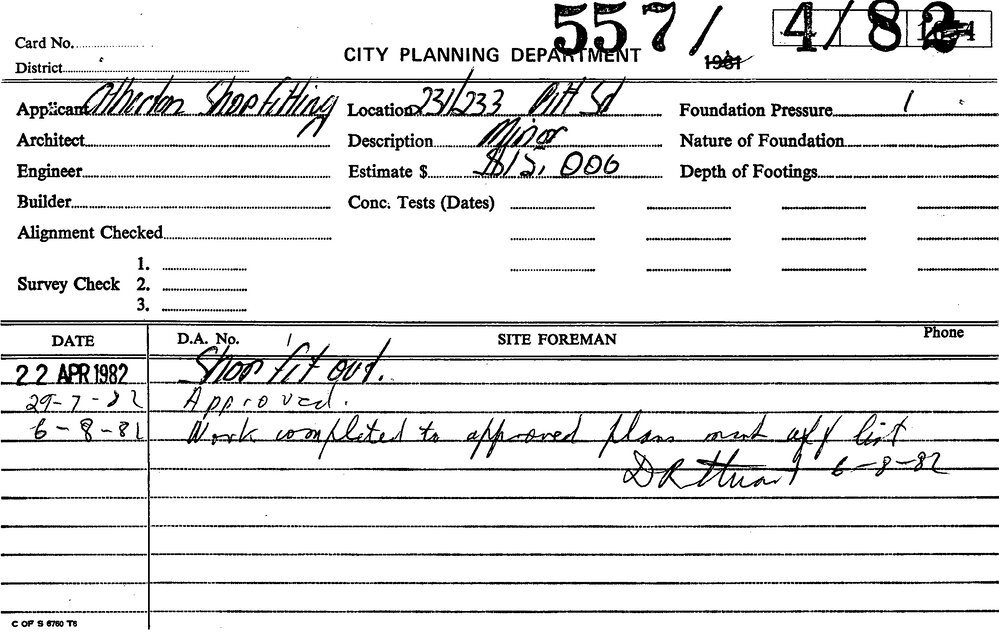 557/ 4/82
Card No.
CITY PLANNING DEPARTMENT 1981
District
Applicant Atherton Shopfitting Location 231/233 Pitt St Foundation Pressure
Architect Description Minor Nature of Foundation
Engineer Estimate $ $15,000 Depth of Footings
Builder Conc. Tests (Dates)
Alignment Checked
1.
Survey Check 2.
3.
DATE D.A. No. SITE FOREMAN Phone
22 APR 1982 Shop fit out.
29-7-82 Approved.
6-8-82 Work completed to approved plans mark off list
6-8-82
C OF S 6760 T6